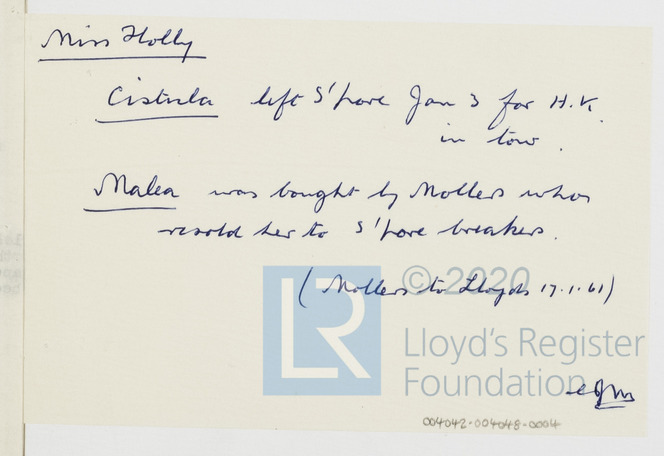 Miss Holly
Cistula left S'pore Jan 3 for H.K.
in tow.
Malea was bought by Mollers who
resold her to S'pore breakers.
(Mollers to Lloyds 17.1.61)
© 2020
LR
Lloyd's Register
Foundation
004042-004048-0004